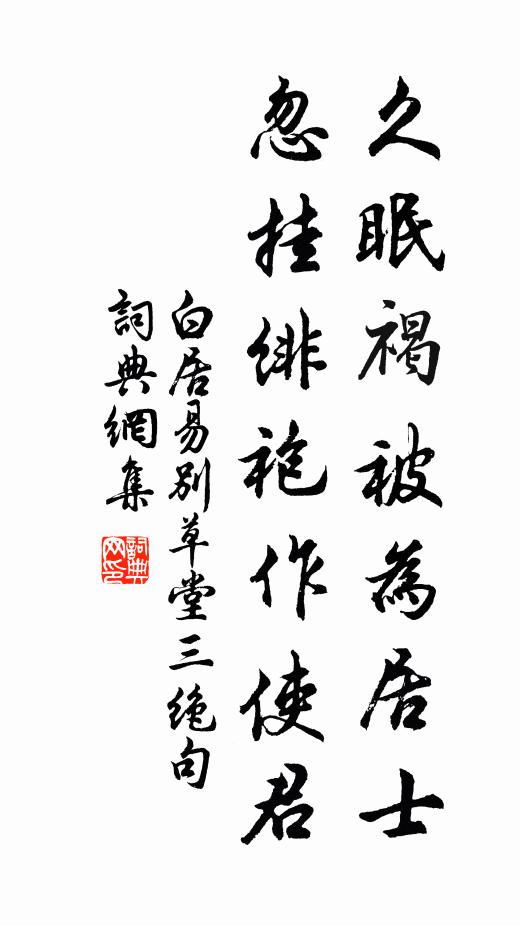 久眠褐被為居士
忽挂緋袍作使君
白居易別草堂三絶句
詞典網集
詞典網印